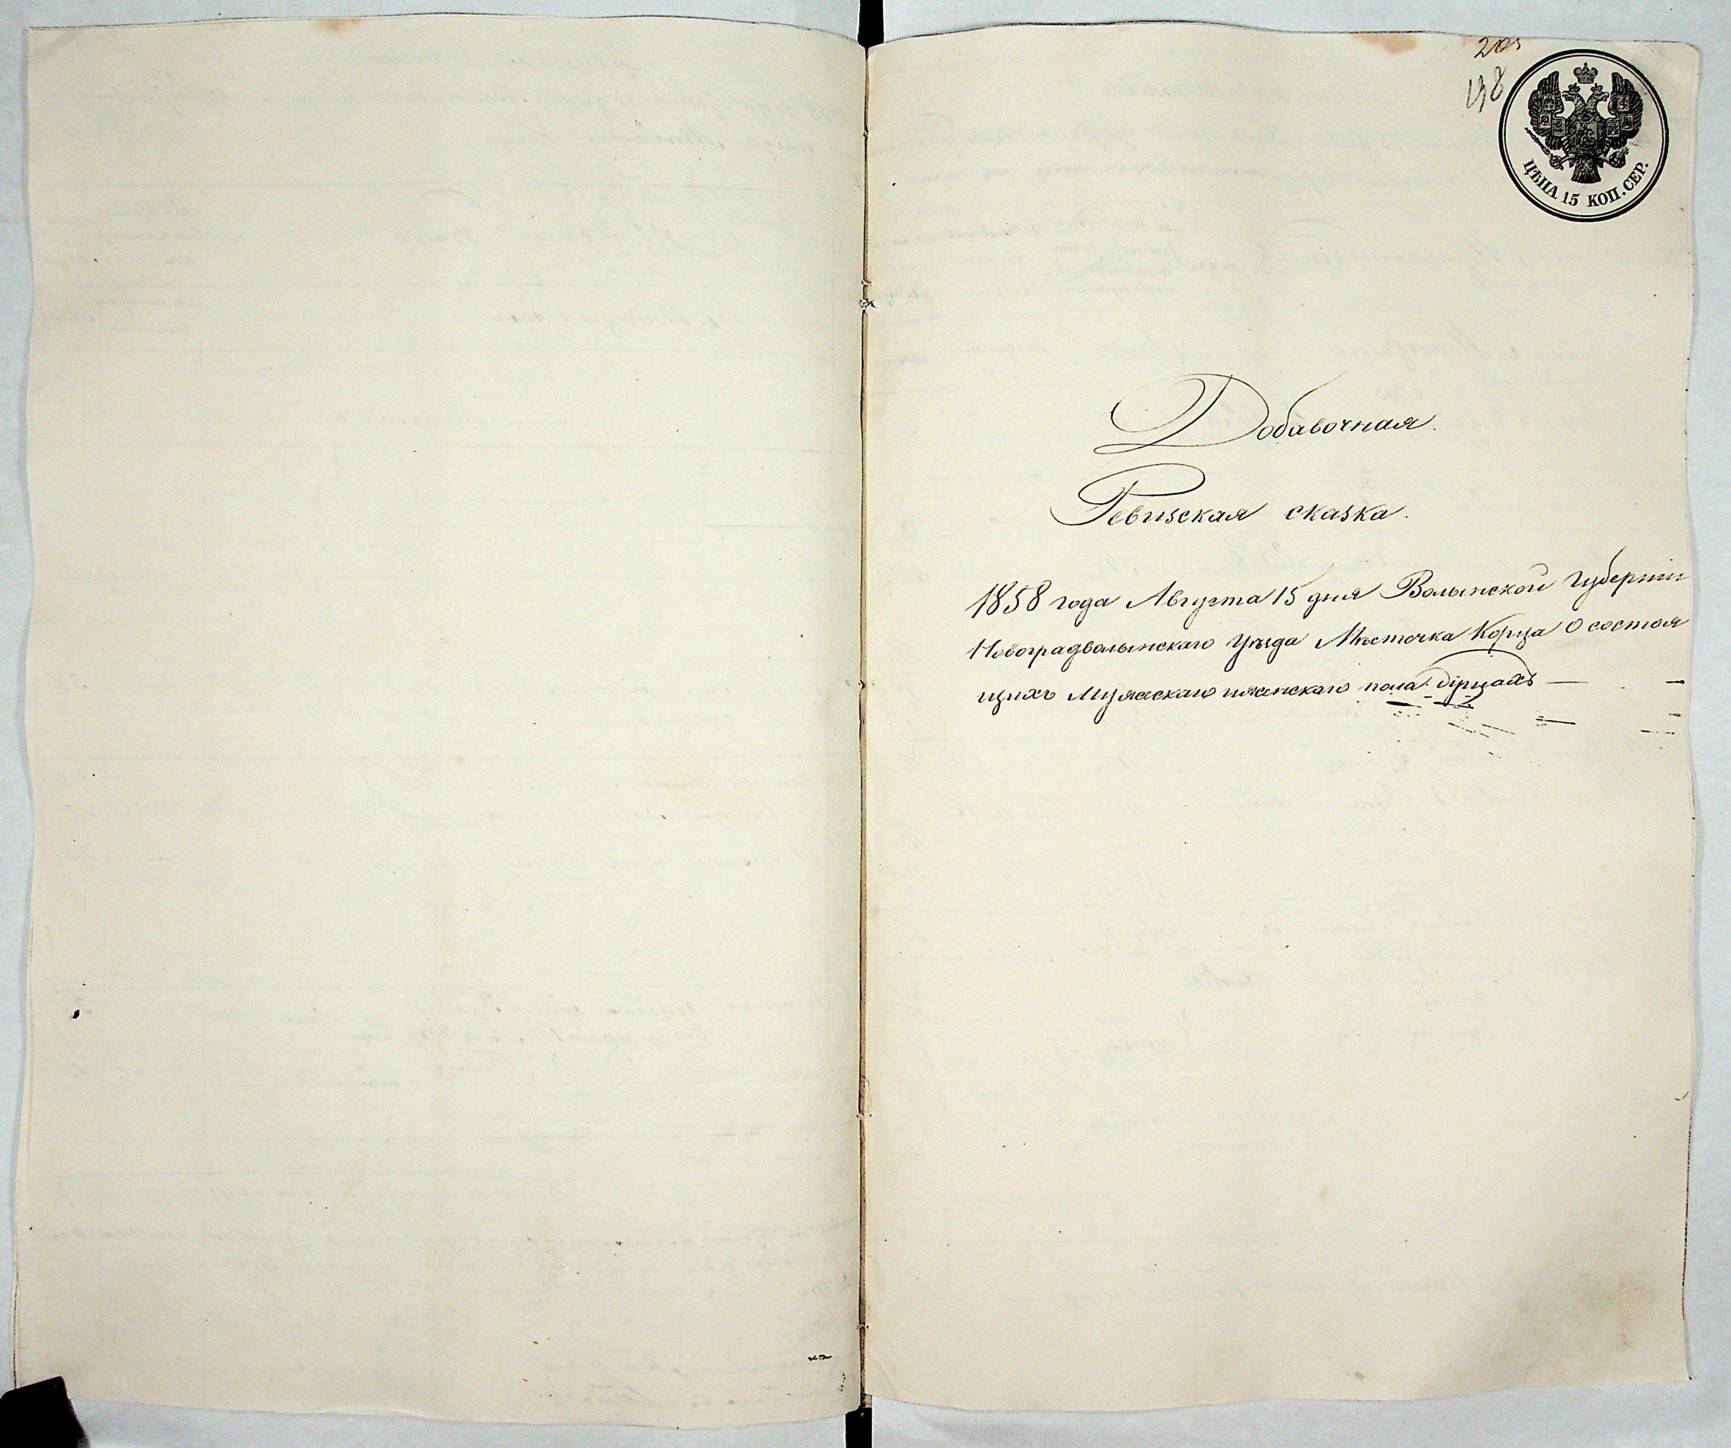 198
ЦѢНА 15 КОП. СЕР.
Добавочная.
Ревизская сказка.
1858 года Августа 15 дня Волынской Губернiи
Новоградволынскаго Уѣзда Мѣстечка Корца О состоя
щихъ Мужескаго и женскаго пола